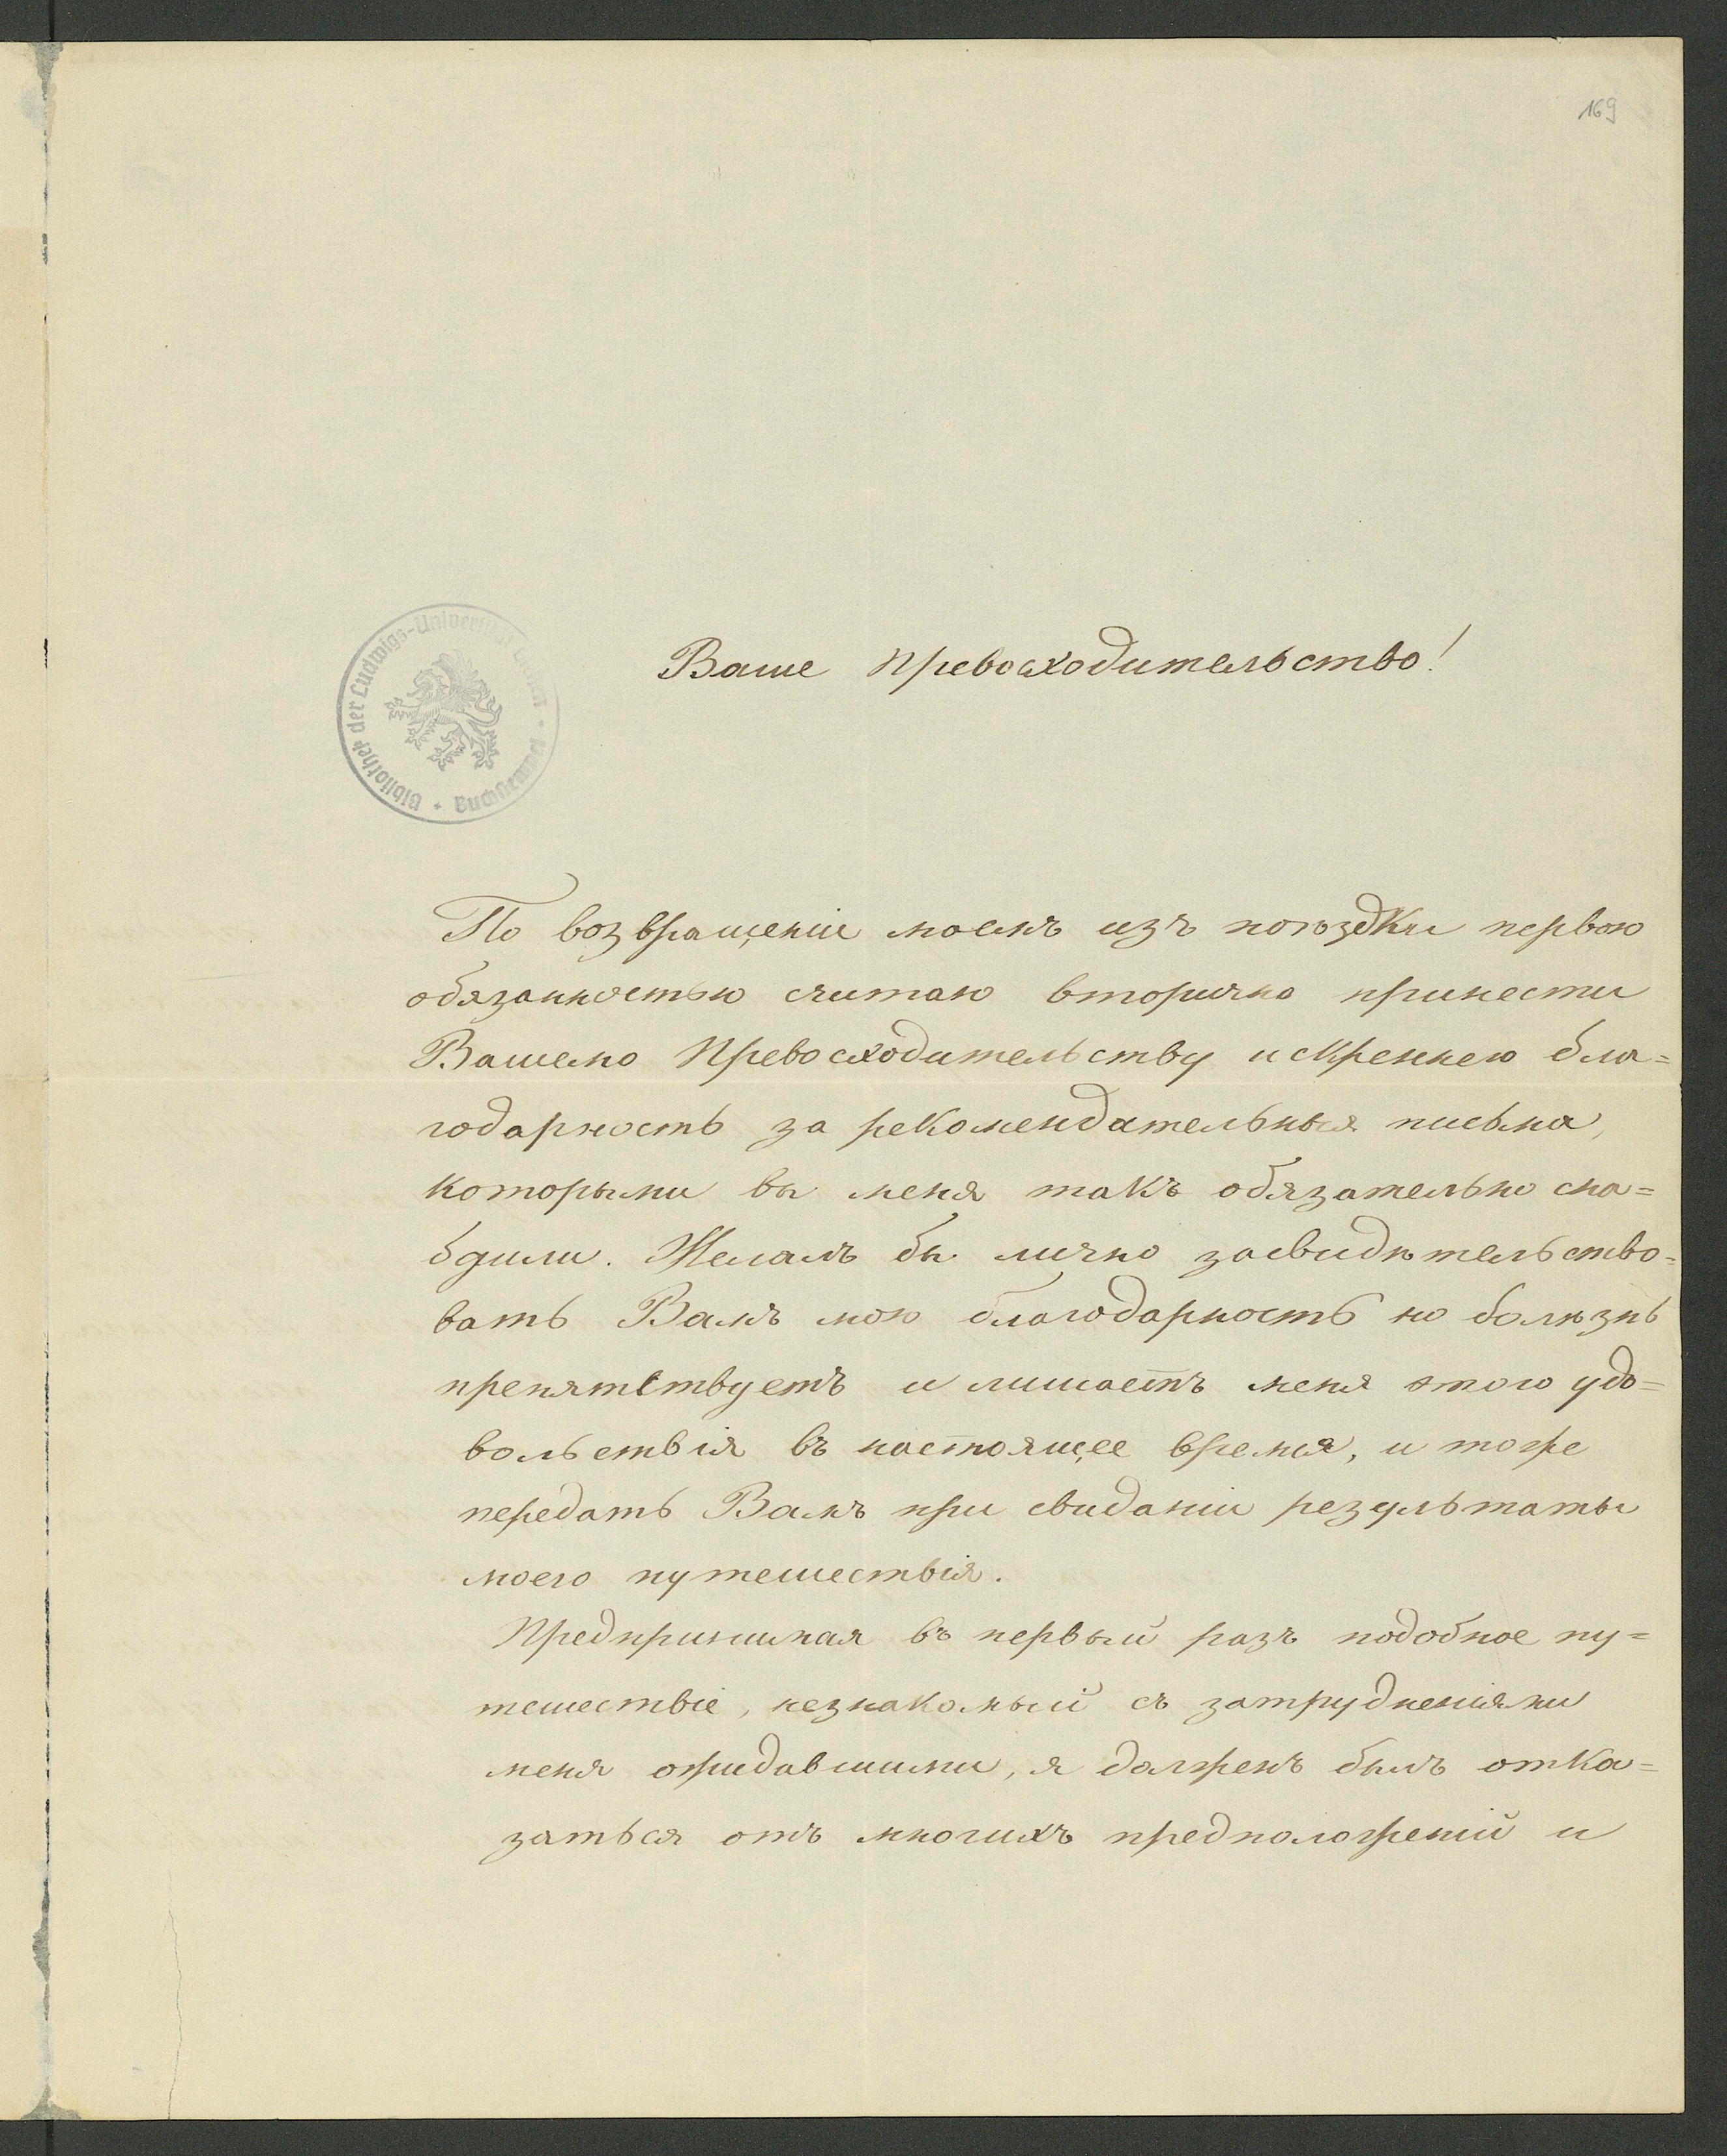 169
Bibliothek der Ludwigs-Universität Giessen
Ваше Превосходительство!
По возвращеніи моемъ изъ поѣздки первою
обязанностью считаю вторично принести
Вашему Превосходительству искреннею бла=
годарность за рекомендательныя письма,
которыми вы меня такъ обязательно сна=
бдили. Желалъ бы лично засвидѣтельство=
вать Вамъ мою благодарность но болѣзнь
препятствуетъ и лишаетъ меня этого удо=
вольствія въ настоящее время, и тоже
передать Вамъ при свиданіи результаты
моего путешествія.
Предпринимая въ первый разъ подобное пу=
тешествіе, незнакомый съ затрудненіями
меня ожидавшими, я долженъ былъ отка=
заться отъ многихъ предположеній и